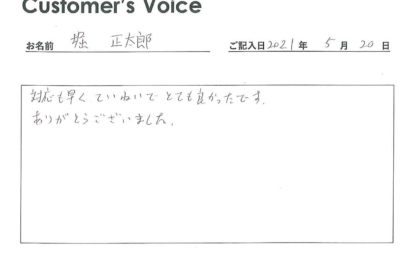 Customer's Voice
お名前 堀 正太郎 ご記入日 2021年 5月 20日
対応も早く ていねいで とても良かったです.
ありがとうございました.